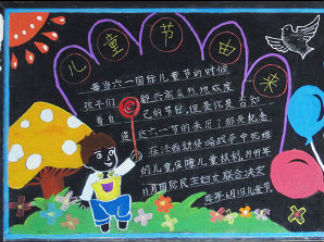 儿童节由来
每当六一国际儿童节的时候
孩子们都兴高采烈地欢度
着自己的节日，但是你是否知
道这六一节的来历？那是起源
在法西斯侵略战争中死难
的儿童，保障儿童权利，1949年
11月国际民主妇女联合决定
每年6月1日儿童节